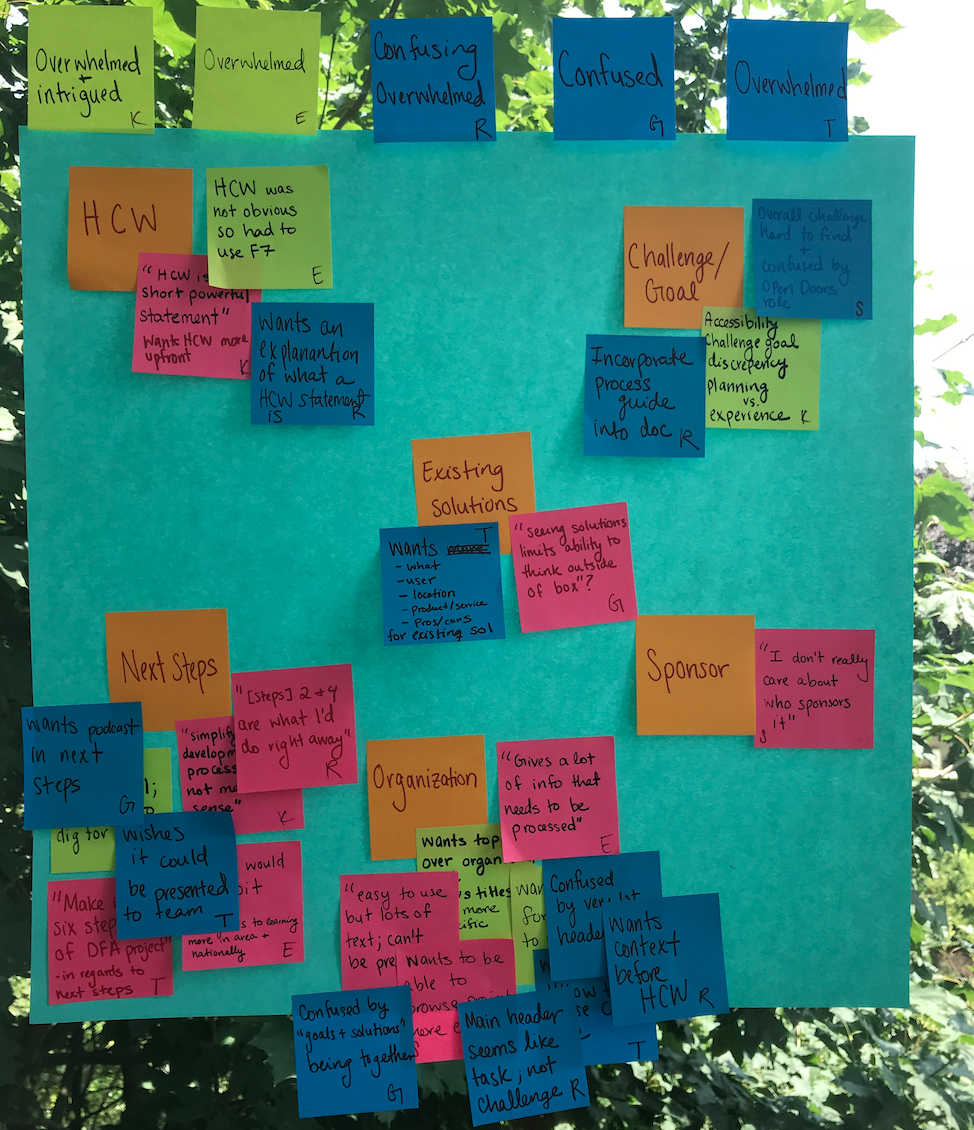 Overwhelmed
+
intrigued
K
Overwhelmed
E
Confusing
Overwhelmed
R
Confused
G
Overwhelmed
T
HCW
HCW was
not obvious
so had to
use F7
E
"HCW is
short powerful
statement"
Wants HCW more
upfront
K
Wants an
explanantion
of what a
HCW statement
is R
Challenge/
Goal
Overall challenge
hard to find
+
confused by
Open Doors
role
S
Incorporate
process
guide
into doc R
Accessibility
Challenge goal
discrepency
planning
vs.
experience K
Existing
solutions
T
wants
- what
- user
- location
- Product/service
- Pros/cons
for existing sol
"seeing solutions
limits ability to
think outside
of box"?
G
Next Steps
Wants podcast
in next
steps
G
"simplify
process
not
sense"
K
"[steps] 2 + 4
are what I'd
do right away"
R
dig for
wishes
it could
be presented
to team T
would
to learning
more in area +
nationally E
"Make
six step
of DFA project"
- in regards to
next steps T
Sponsor
"I don't really
care about
who sponsors
it"
S
Organization
"Gives a lot
of info that
needs to be
processed"
E
Wants top
over
titles
more
"easy to use
but lots of
text; can't
be
Wants to be
able to
to
Confused
by
Wants
context
before
HCW R
T
Confused by
"goals + solutions"
being together
G
Main header
seems like
task, not
challenge R